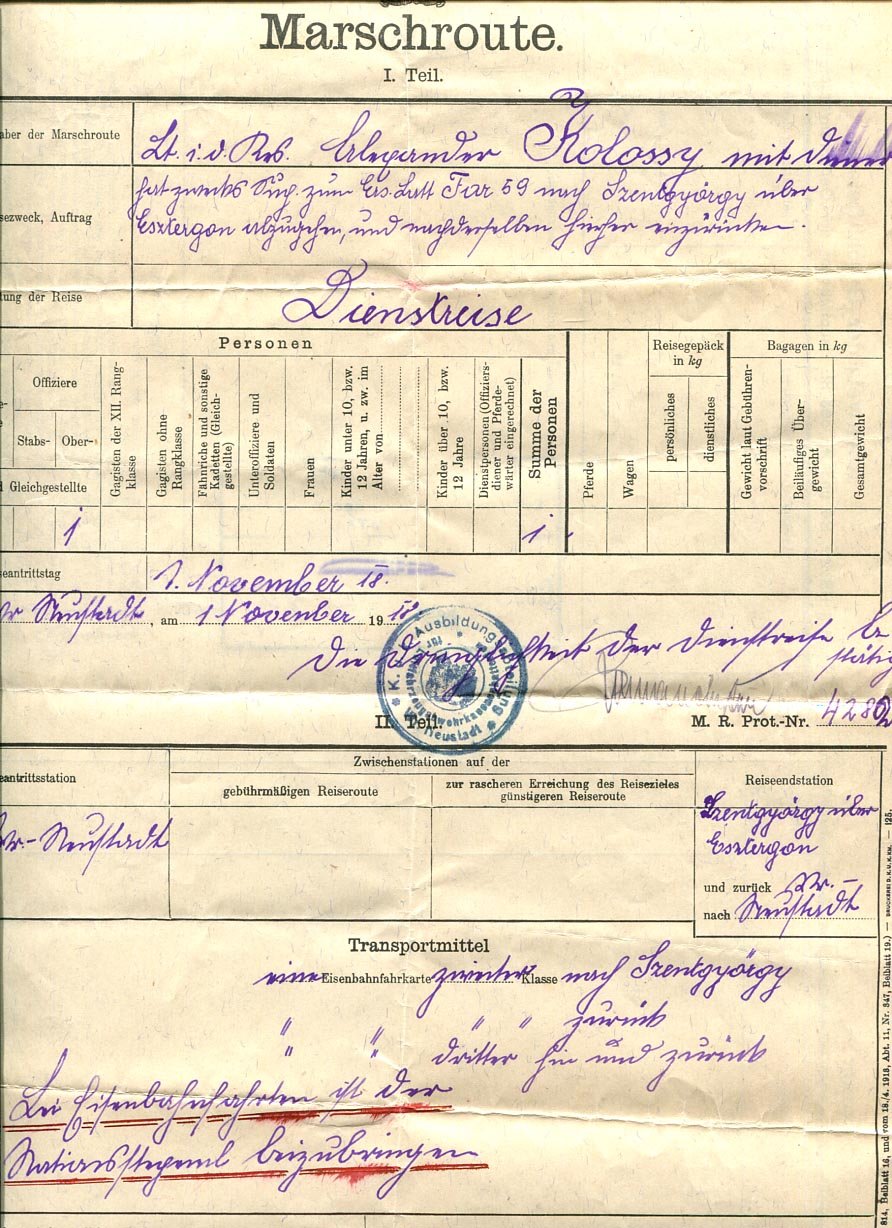 Marschroute.
I. Teil.
aber der Marschroute
Lt. i. d. Res. Alexander Kolossy mit Diener
sezweck, Auftrag
hat zwecks zum Ers. Batt 59 nach Szentgyörgy über
Esztergon abzugehen, und nach derselben hieher einzurücken.
tung der Reise
Dienstreise
Personen
Offiziere
Stabs-
Ober-
Gleichgestellte
Gagisten der XII. Rang-
klasse
Gagisten ohne
Rangklasse
Fähnriche und sonstige
Kadetten (Gleich-
gestellte)
Unteroffiziere und
Soldaten
Frauen
Kinder unter 10, bzw.
12 Jahren, u. zw. im
Alter von
Kinder über 10, bzw.
12 Jahre
Dienstpersonen (Offiziers-
diener und Pferde-
wärter eingerechnet)
Summe der
Personen
Pferde
Wagen
Reisegepäck
in kg
persönliches
dienstliches
Bagagen in kg
Gewicht laut Gebühren-
vorschrift
Beiläufiges Über-
gewicht
Gesamtgewicht
1
1.
seantrittstag
1. November 18.
Wr Neustadt, am 1 November 1918.
Die Dringlichkeit der Dienstreise be
stätig
K. Ausbildung für Wr. Neustadt
II. Teil.
M. R. Prot.-Nr. 4282
eantrittsstation
Zwischenstationen auf der
gebührmäßigen Reiseroute
zur rascheren Erreichung des Reisezieles
günstigeren Reiseroute
Reiseendstation
Wr.-Neustadt
Szentgyörgy über
Esztergon
und zurück Wr.-
nach Neustadt
Transportmittel
eine Eisenbahnfahrkarte zweiter Klasse nach Szentgyörgy
" " " " zurück
" " dritter hin und zurück
Bei Eisenbahnfahrten ist der
Stationsstempel beizubringen
814, Beiblatt 16, und vom 18./4. 1918, Abt. 11, Nr. 347, Beiblatt 19.) — DRUCKEREI D. K. U. K. KM. — 125.